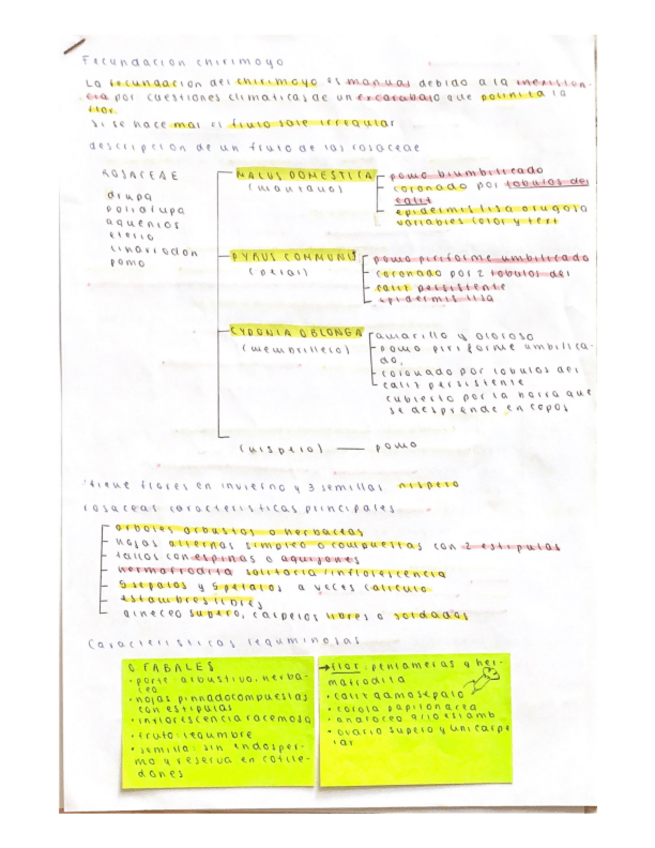 Fecundacion chirimoyo
La fecundacion del chirimoyo es manual debido a la inexisten-
cia por cuestiones climaticas de un escarabajo que polinita la
flor.
si se hace mal el fruto sale irregular
descripcion de un fruto de las rosaceae
ROSACEAE
drupa
polidrupa
aquenios
eterio
cinorrodon
pomo
MALUS DOMESTICA
(manzano)
pomo biumbilicado
coronado por lobulos del
caliz
epidermis lisa o rugosa
variables color y text
PYRUS COMMUNIS
(peral)
pomo piriforme umbilicado
coronado por 2 lobulos del
caliz persistente
epidermis lisa
CYDONIA OBLONGA
(membrillero)
amarillo y oloroso
pomo piriforme umbilica-
do,
coronado por lobulos del
caliz persistente
cubierto por la borra que
se desprende en copos
(nispero) — pomo
tiene flores en invierno y 3 semillas nispero
rosaceas caracteristicas principales
arboles arbustos o herbaceas
hojas alternas simples o compuestas con 2 estipulas
tallos con espinas o aguijones
hermafrodita solitaria/inflorescencia
5 sepalos y 5 petalos a veces caliculo
estambres libres
gineceo supero, carpelos libres o soldados
Caracteristicas leguminosas
O. FABALES
• porte: arbustivo, herba-
ceo
• hojas pinnadocompuestas
con estipulas
• inflorescencia racemosa
• fruto: legumbre
• semilla: sin endosper-
mo y reserva en cotile-
dones
→ flor: pentameras y her-
mafrodita
• caliz gamosepalo
• corola papilonacea
• androceo
• ovario supero y unicarpe
lar